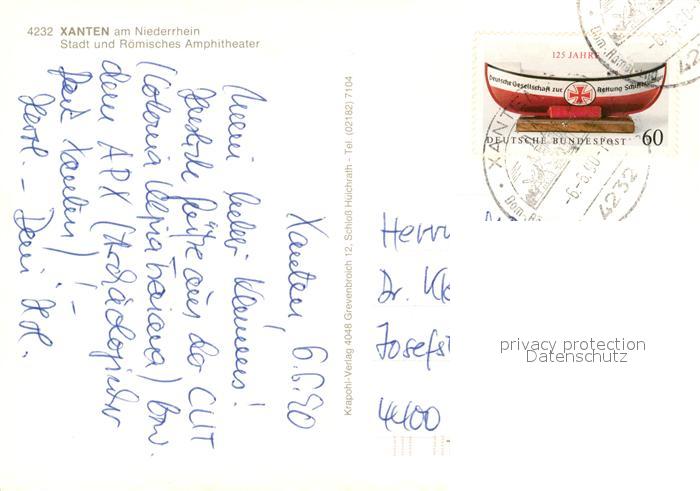 4232 XANTEN am Niederrhein
Stadt und Römisches Amphitheater
Xanten, 6.6.90
Mein lieber Klemens!
Herzliche Grüße aus der CUT
(Colonia Ulpia Traiana) bzw.
dem APX (Archäologischer
Park Xanten)! –
Herzl. – Dein
Krapohl-Verlag 4048 Grevenbroich 12, Schloß Hülchrath - Tel. (02182) 7104
125 JAHRE
Deutsche Gesellschaft zur Rettung Schiffbrüchiger
DEUTSCHE BUNDESPOST 60
XANTEN
-6.-6.90-
4232
-6.-6.90
4232
Herrn
Dr.
4400
privacy protection
Datenschutz